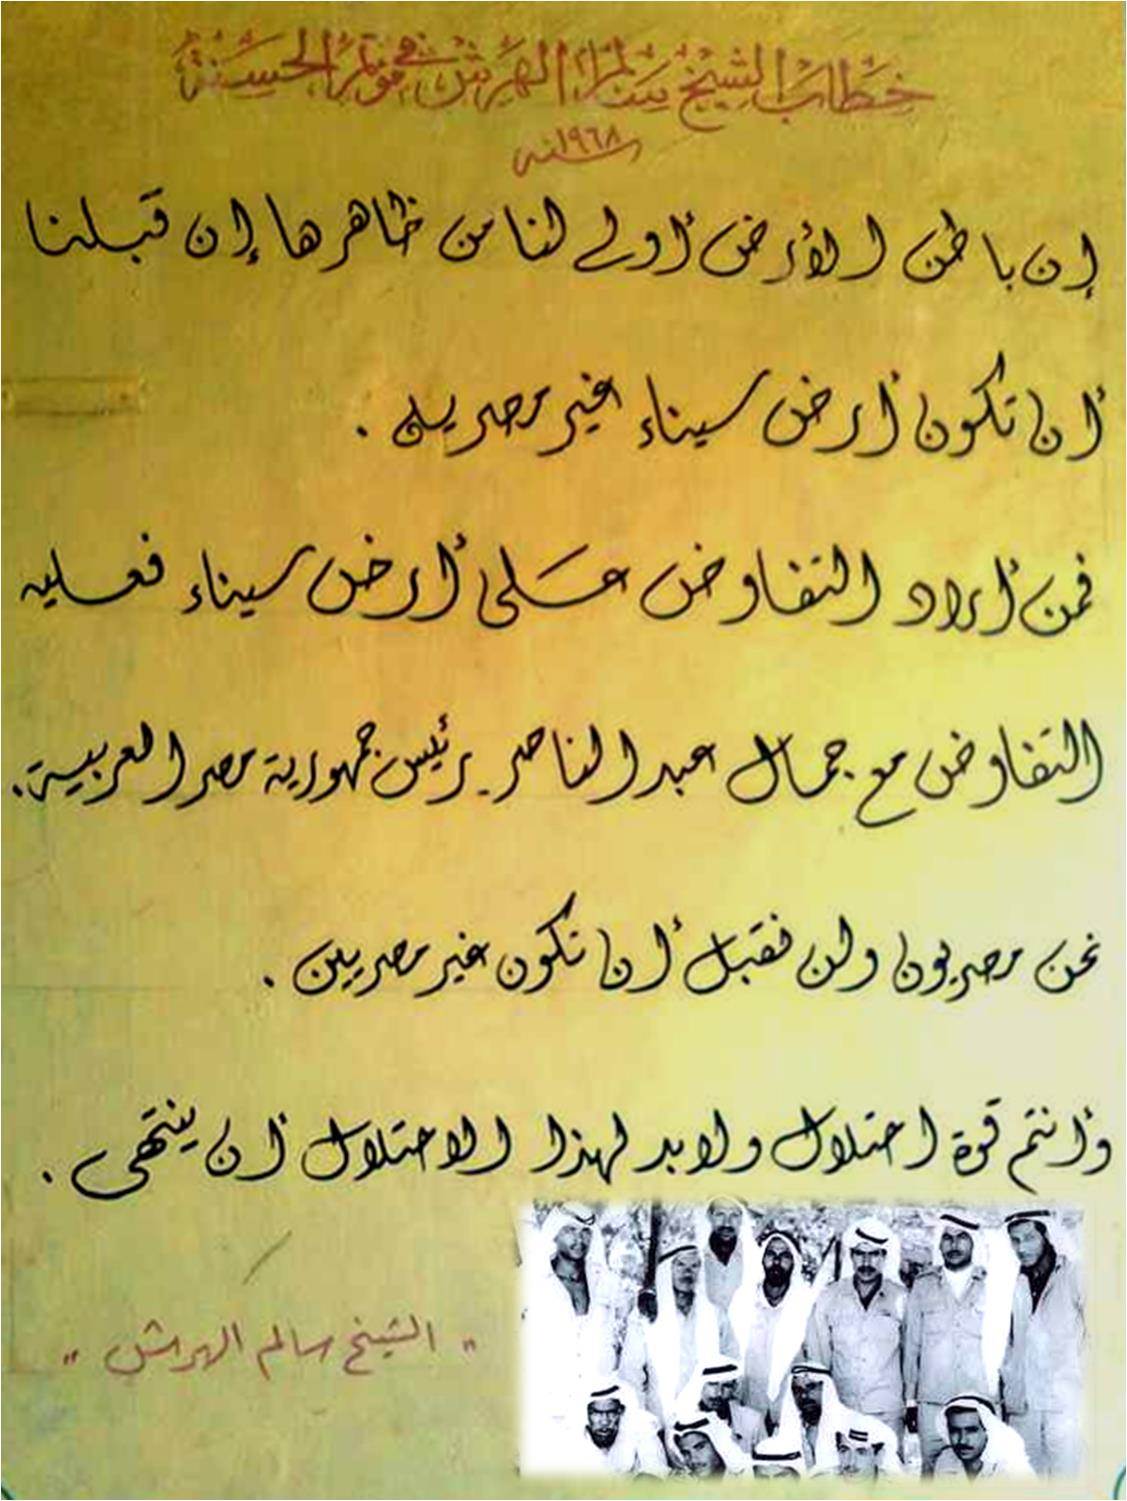 خطاب الشيخ سالم الهرش في مؤتمر الحسنة
سنة ١٩٦٨
إن باطن الأرض أولى لنا من ظاهرها إن قبلنا
أن تكون أرض سيناء غير مصرية .
فمن أراد التفاوض على أرض سيناء فعليه
التفاوض مع جمال عبد الناصر رئيس جمهورية مصر العربية .
نحن مصريون ولن نقبل أن نكون غير مصريين .
وأنتم قوة احتلال ولابد لهذا الاحتلال أن ينتهى .
" الشيخ سالم الهرش "